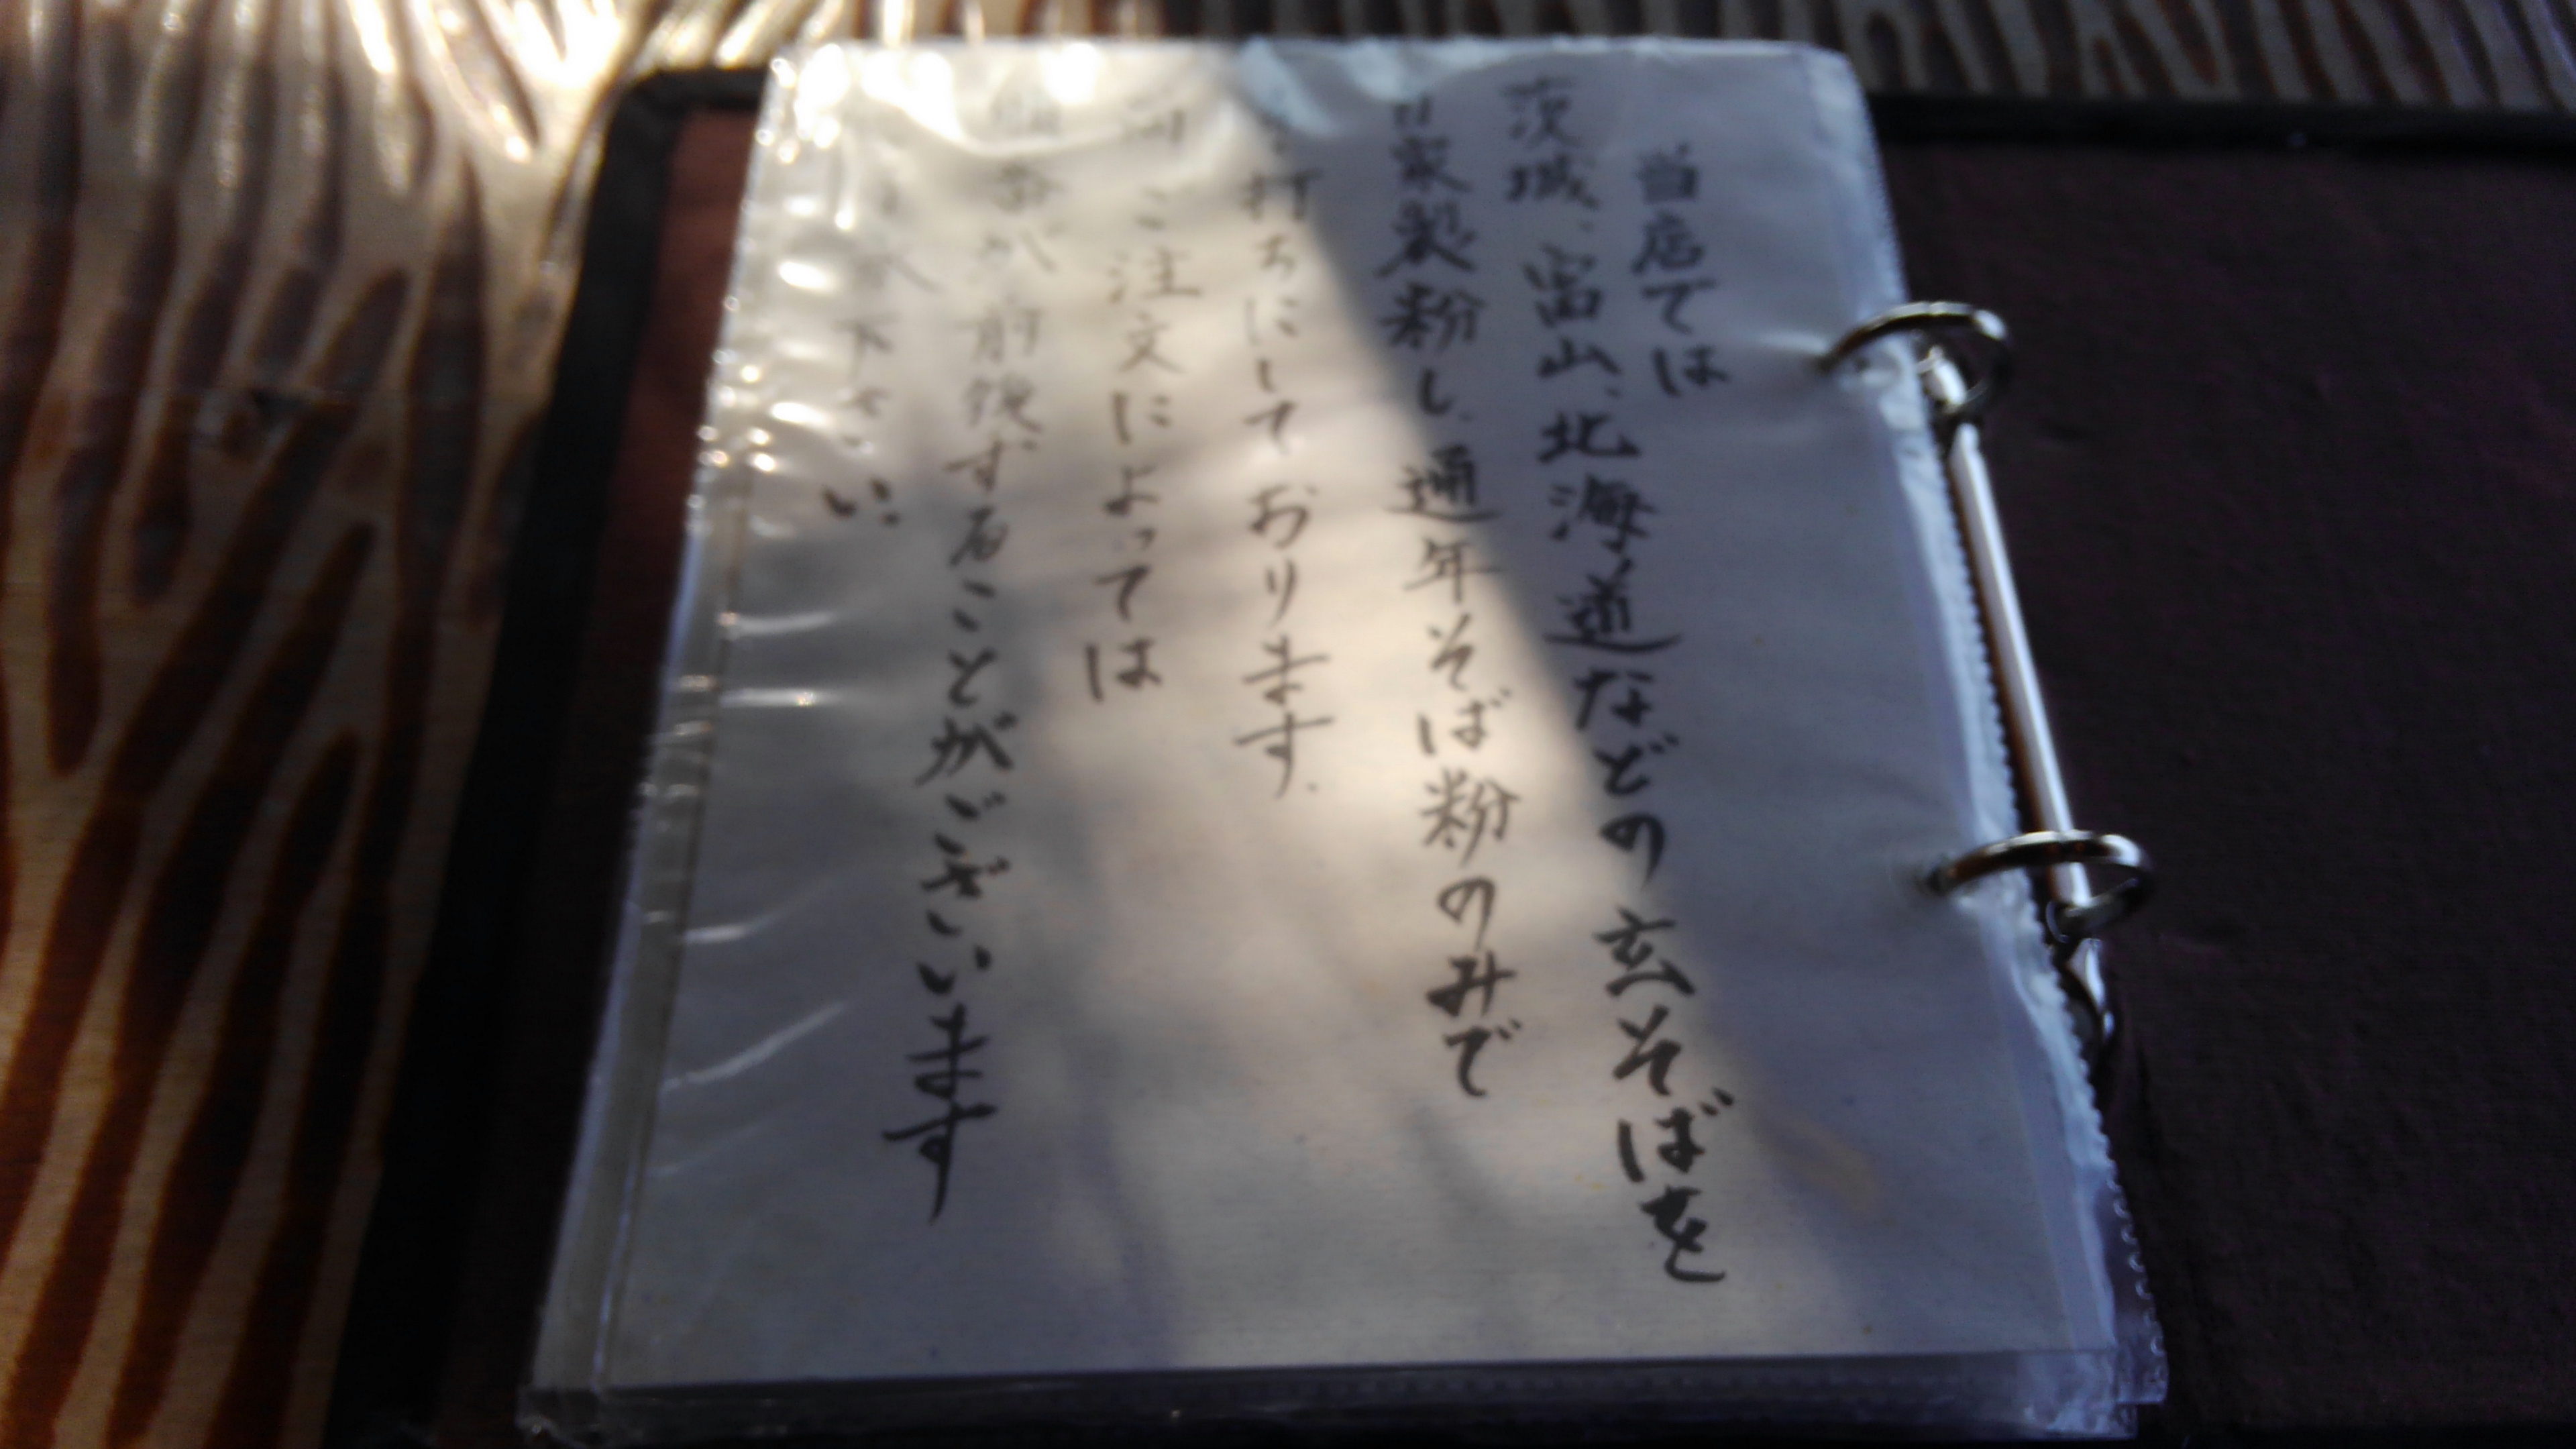 当店では
茨城、富山、北海道などの玄そばを
自家製粉し、通年そば粉のみで
打ちにしております.
ご注文によっては
順番が前後することがございます
下さい